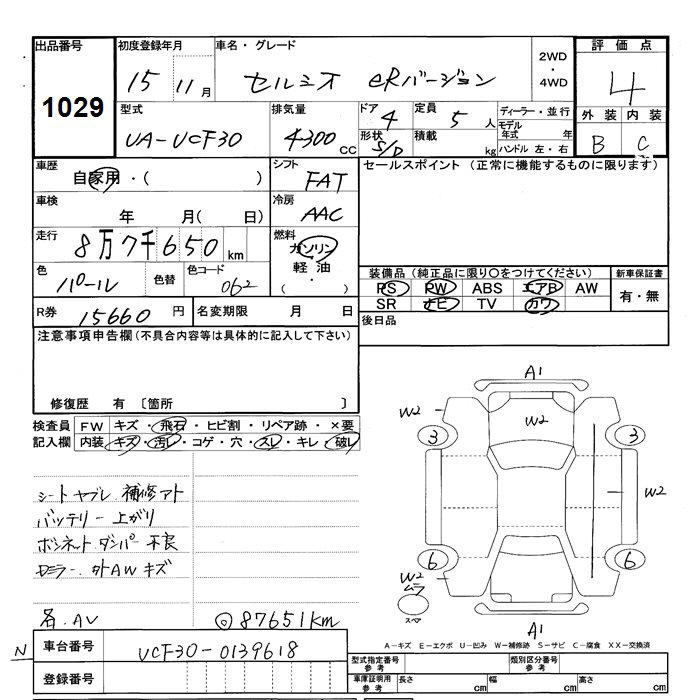 出品番号 初度登録年月 車名・グレード 評価点
1029 15 11月 セルシオ eRバージョン 2WD・4WD 4
型式 排気量 ドア 定員 ディーラー・並行 外装 内装
UA-UCF30 4300 CC 4 5人 モデル年式 年 B C
形状 積載 ハンドル 左・右
S/D kg
車歴 シフト セールスポイント (正常に機能するものに限ります)
自家用・( ) FAT
車検 冷房
年 月( 日) AAC
走行 燃料
8万7千650km ガソリン
色 色替 色コード 軽油
パール 062 ( ・ )
装備品 (純正品に限り○をつけてください) 新車保証書
PS PW ABS エアB AW 有・無
SR ナビ TV カワ
R券 15660円 名変期限 月 日 後日品
注意事項申告欄 (不具合内容等は具体的に記入して下さい)
修復歴 有 〔箇所 〕
検査員 FW キズ・飛石・ヒビ割・リペア跡・×要
記入欄 内装 キズ・汚レ・コゲ・穴・スレ・キレ・破レ
シート ヤブレ 補修アト
バッテリー 上がり
ボンネット ダンパー 不良
外AW キズ
各.AV ◎87651km
A1
W2 W2
3 3
W2
6 6
W2
ムラ
スペア
A1
A-キズ E-エクボ U-凹み W-補修跡 S-サビ C-腐食 XX-交換済
N 車台番号 UCF30-0139618
登録番号
型式指定番号 参考 類別区分番号 参考
車庫証明用 参考 長さ cm 幅 cm 高さ cm